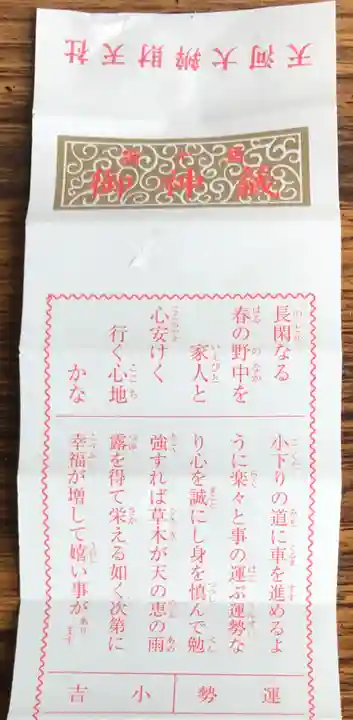 天河大辨財天社
第八番
御神籤
長閑なる
春の野中を
家人と
心安けく
行く心地
かな
小下りの道に車を進めるよ
うに楽々と事の運ぶ運勢な
り心を誠にし身を慎んで勉
強すれば草木が天の恵の雨
露を得て栄える如く次第に
幸福が増して嬉い事があります
運勢
小吉